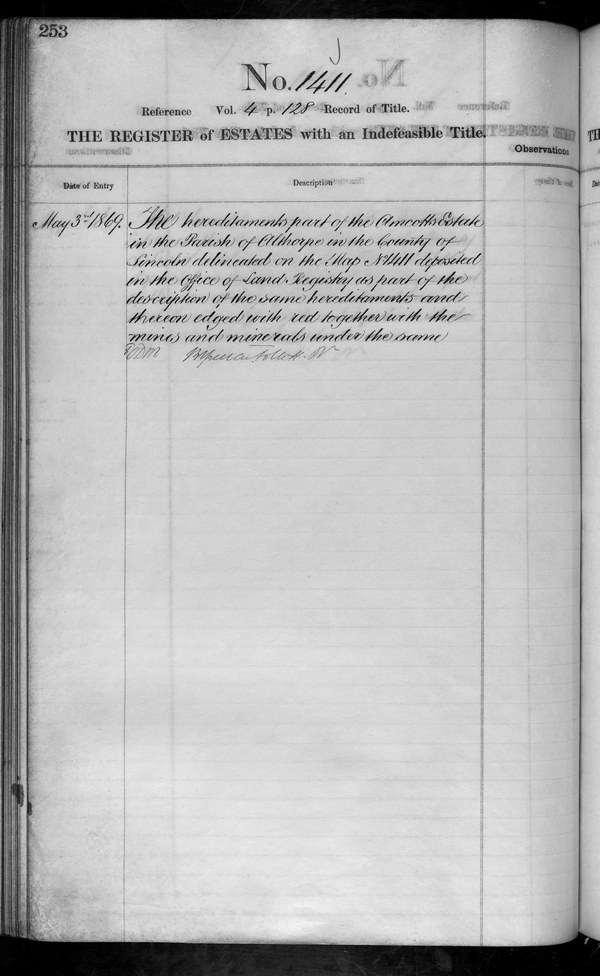 253
No. 1411.
Reference Vol. 4 p. 128 Record of Title.
THE REGISTER of ESTATES with an Indefeasible Title.
Observations
Date of Entry
Description
May 3rd 1869.
The hereditaments part of the Amcotts Estate
in the Parish of Althorpe in the County of
Lincoln delineated on the Map No 1411 deposited
in the Office of Land Registry as part of the
description of the same hereditaments and
thereon edged with red together with the
mines and minerals under the same